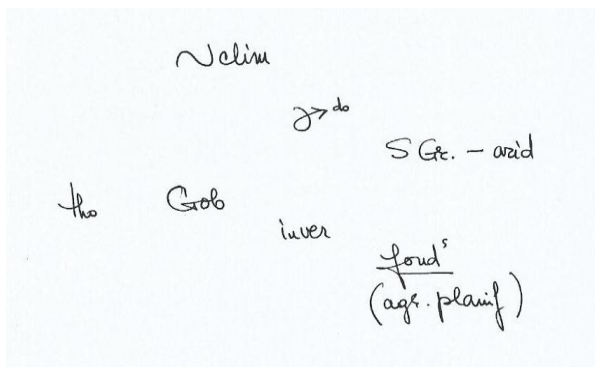 clim
do
S Gr. - arid
tho Gob
inver
fond s
(agr. planif)